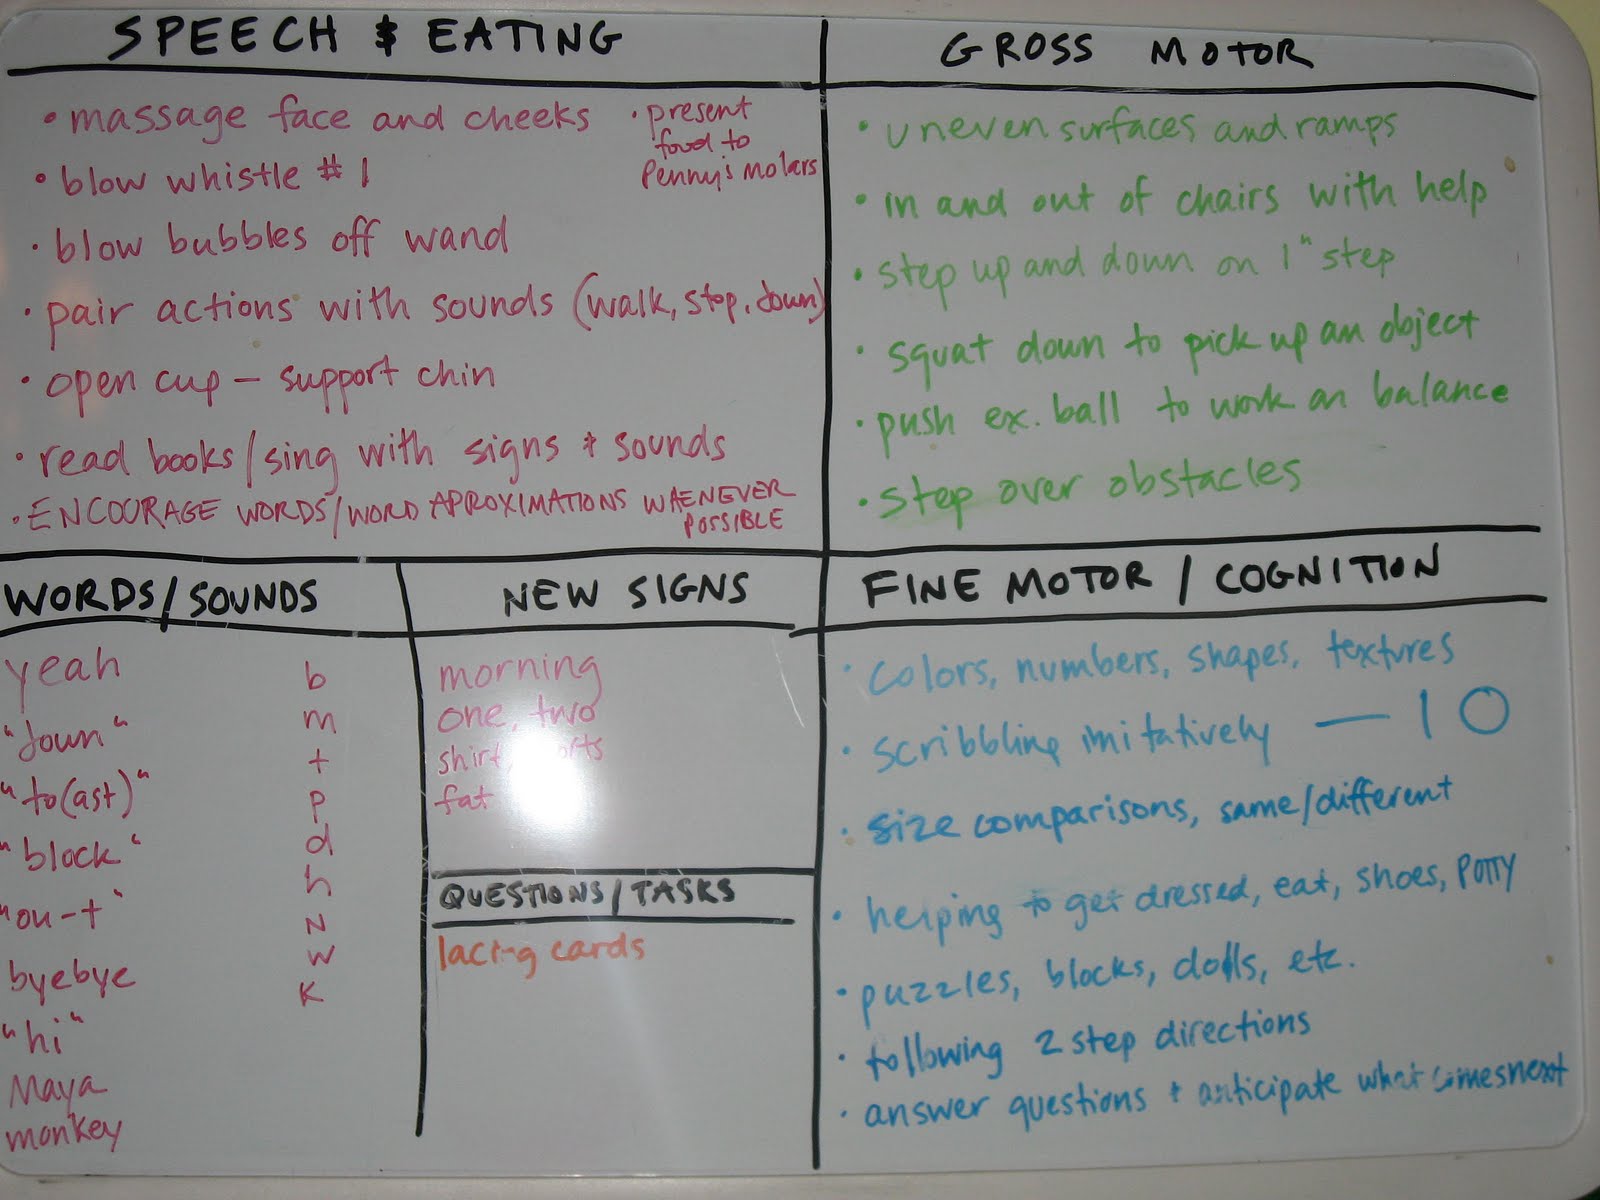 SPEECH & EATING
• massage face and cheeks
• blow whistle #1
• blow bubbles off wand
• pair actions with sounds (walk, stop, down)
• open cup – support chin
• read books/sing with signs & sounds
• ENCOURAGE WORDS/WORD APROXIMATIONS WHENEVER
POSSIBLE
• present
food to
Penny's molars
GROSS MOTOR
• uneven surfaces and ramps
• in and out of chairs with help
• step up and down on 1" step
• squat down to pick up an object
• push ex. ball to work on balance
• step over obstacles
WORDS/SOUNDS
yeah
"down"
"to(ast)"
"block"
"ou-t"
byebye
"hi"
Maya
monkey
b
m
t
p
d
h
N
w
K
NEW SIGNS
morning
one, two
shirt,
fat
QUESTIONS/TASKS
lacing cards
FINE MOTOR / COGNITION
• colors, numbers, shapes, textures
• scribbling imitatively — | O
• size comparisons, same/different
• helping to get dressed, eat, shoes, POTTY
• puzzles, blocks, dolls, etc.
• following 2 step directions
• answer questions & anticipate what comes next